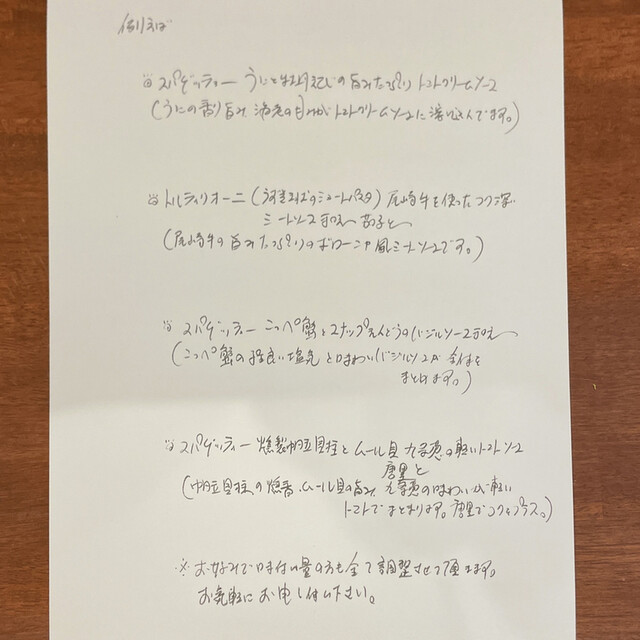 例えば
◎ スパゲッティー うにと 旨みたっぷり トマトクリームソース
(うにの香り 旨み 甘みがトマトクリームソースに溶け込んでます。)
◎ トルティリオーニ (うずまきのショートパスタ) 尾崎牛を使ったコク深
ミートソース和え 茄子と
(尾崎牛の旨みたっぷりのボローニャ風ミートソースです。)
◎ スパゲッティー こっペ蟹とスナップえんどうのバジルソース和え
(こっペ蟹の程良い塩気と味わい バジルソースが全体を
まとめます。)
◎ スパゲッティー 燻製帆立貝柱とムール貝 九条葱の軽いトマトソース
唐墨と
(帆立貝柱の燻香 ムール貝の旨み 九条葱の味わいが軽い
トマトでまとまります。唐墨でコクをプラス。)
※ お好みで味付け量の方も全て調整させて頂きます。
お気軽にお申し付け下さい。